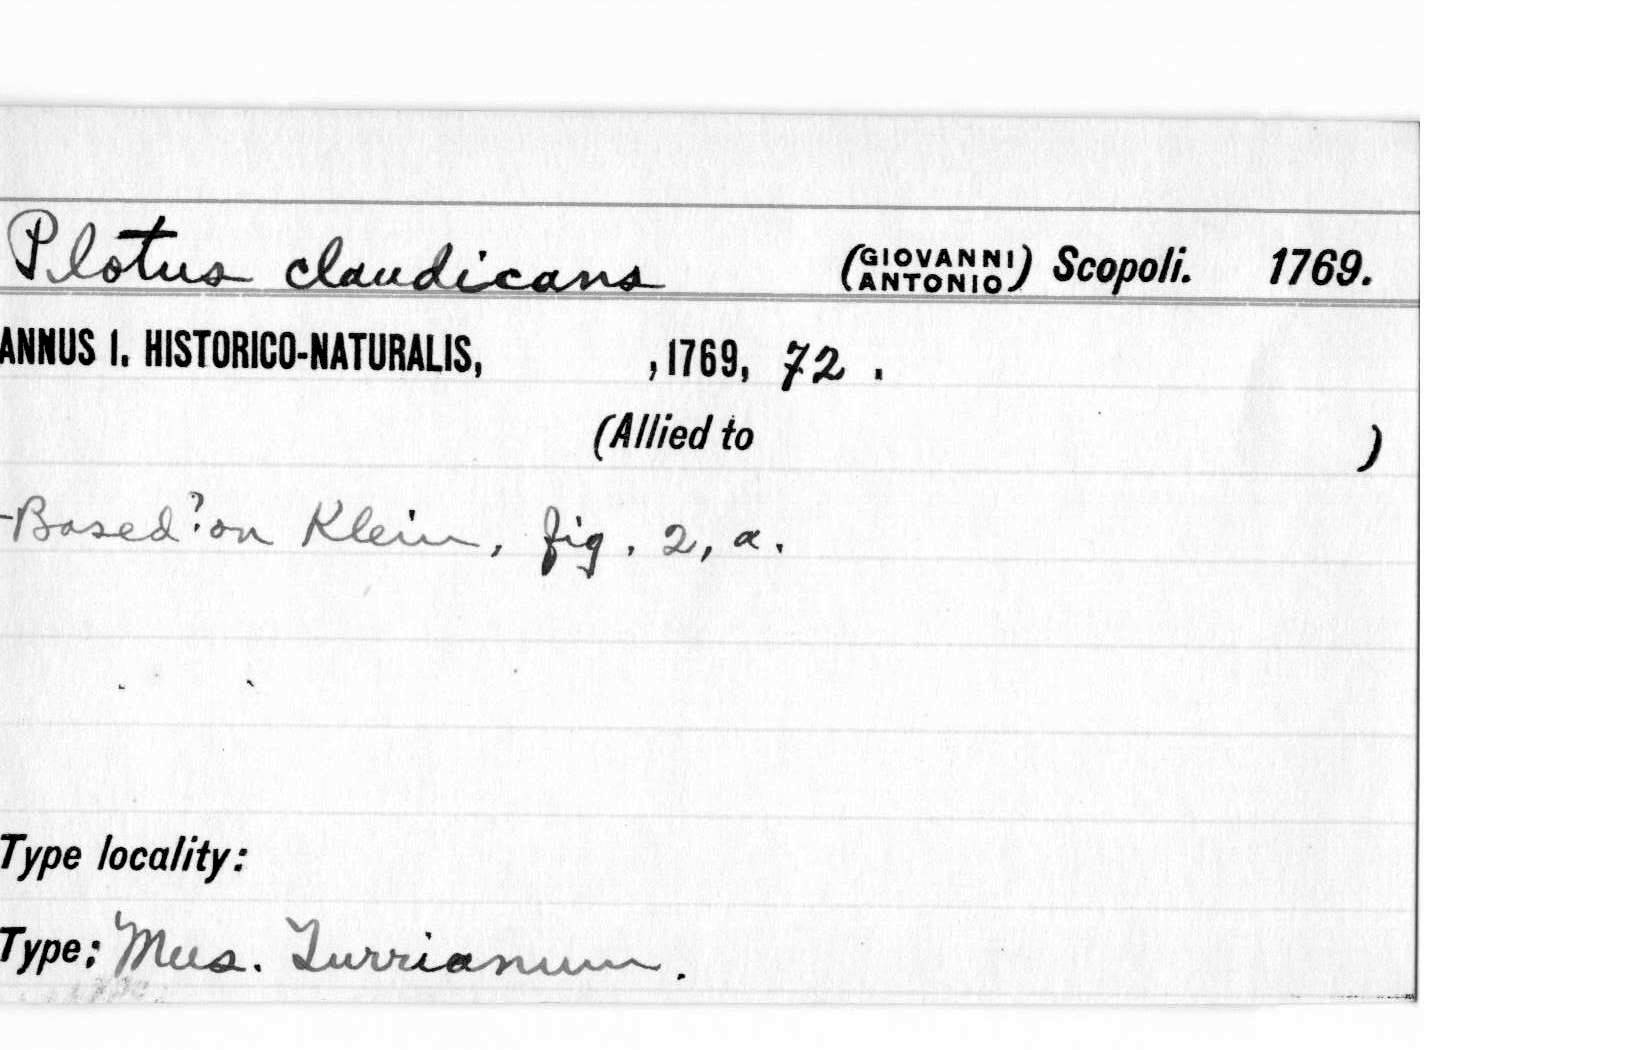 Plotus claudicans (GIOVANNI ANTONIO) Scopoli. 1769.
ANNUS I. HISTORICO-NATURALIS, , 1769, 72 .
(Allied to )
-Based ? on Klein, fig. 2, a.
Type locality:
Type: Mus. Turrianum.